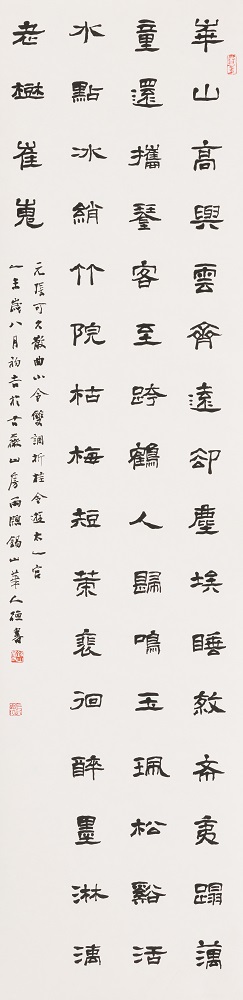 華山高與雲齊遠卻塵埃睡殺希夷蹋藕
童還攜琴客至跨鶴人歸鳴玉珮松谿活
水點冰綃竹院枯梅短策裵徊醉墨淋漓
老樹崔嵬
元張可久散曲小令雙調折桂令遊太一宮
歲八月初吉於古嚴山房雨牕錫山華人德書